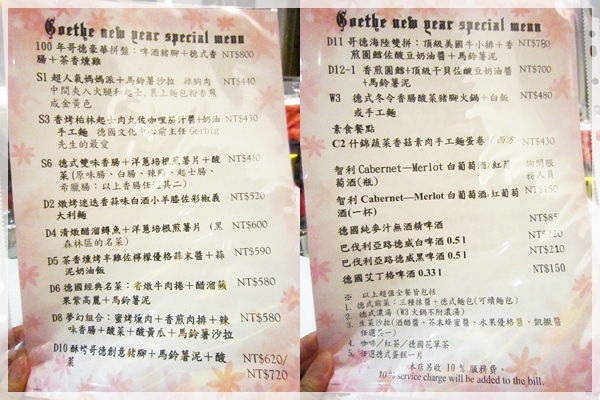 Goethe new year special menu
100 年哥德豪華拼盤：啤酒豬腳＋德式香 NT$800
腸＋茶香燻雞
S1 超人氣媽媽派＋馬鈴薯沙拉 雞胸肉 NT$440
中間夾入火腿和起士,裹上麵包粉香煎
成金黃色
S3 香烤柏林起士肉丸佐咖哩茄汁醬＋奶油 NT$430
手工麵 德國文化中心前主任 Gerbig
先生的最愛
S6 德式雙味香腸＋洋蔥培根煎薯片＋酸 NT$410
菜(原味腸、白腸、辣腸、起士腸、
希臘腸：以上香腸任選其二)
D2 燉烤迷迭香蒜味白酒小羊膝佐彩椒義 NT$520
大利麵
D4 清燉醋溜鱒魚＋洋蔥培根煎薯片 (黑 NT$600
森林區的名菜)
D5 茶香燻烤半雞佐檸檬優格蒜末醬＋蒜 NT$590
泥奶油飯
D6 德國經典名菜：香燉牛肉捲＋醋溜蘋 NT$580
果紫高麗＋馬鈴薯泥
D8 夢幻組合：蜜烤燻肉＋香煎肉排＋辣 NT$580
味香腸＋酸菜＋酸黃瓜＋馬鈴薯沙拉
D10 酥烤哥德創意豬腳＋馬鈴薯泥＋酸 NT$620/
菜 NT$720
Goethe new year special menu
D11 哥德海陸雙拼：頂級美國牛小排＋香 NT$780
煎圓鱈佐酸豆奶油醬＋馬鈴薯泥
D12-1 香煎圓鱈+頂級干貝佐酸豆奶油醬 NT$700
＋馬鈴薯泥
W3 德式冬令香腸酸菜豬腳火鍋＋白飯 NT$480
或手工麵
素食餐點
C2 什錦蔬菜香菇素肉手工麵蛋卷／西方 NT$430
智利 Cabernet—Merlot 白葡萄酒/紅葡 詢問服
萄酒(瓶) 務人員
智利 Cabernet—Merlot 白葡萄酒/紅葡萄 NT$150
酒(一杯)
德國純麥汁無酒精啤酒 NT$85
巴伐利亞路德威白啤酒 0.5 l
巴伐利亞路德威黑啤酒 0.5 l NT$210
德國艾丁格啤酒 0.33 l NT$150
※ 以上超值全餐皆包括
1. 德式前菜：三種抹醬＋德式麵包(可續麵包)
2. 德式濃湯 (W3 火鍋不附濃湯)
3. 生菜沙拉(酒醋醬、芥末蜂蜜醬、水果優格醬、凱撒醬
任選其一)
4. 咖啡／紅茶／德國花草茶
5. 任選德式蛋糕一片
本店另收 10 % 服務費。
10 % service charge will be added to the bill.